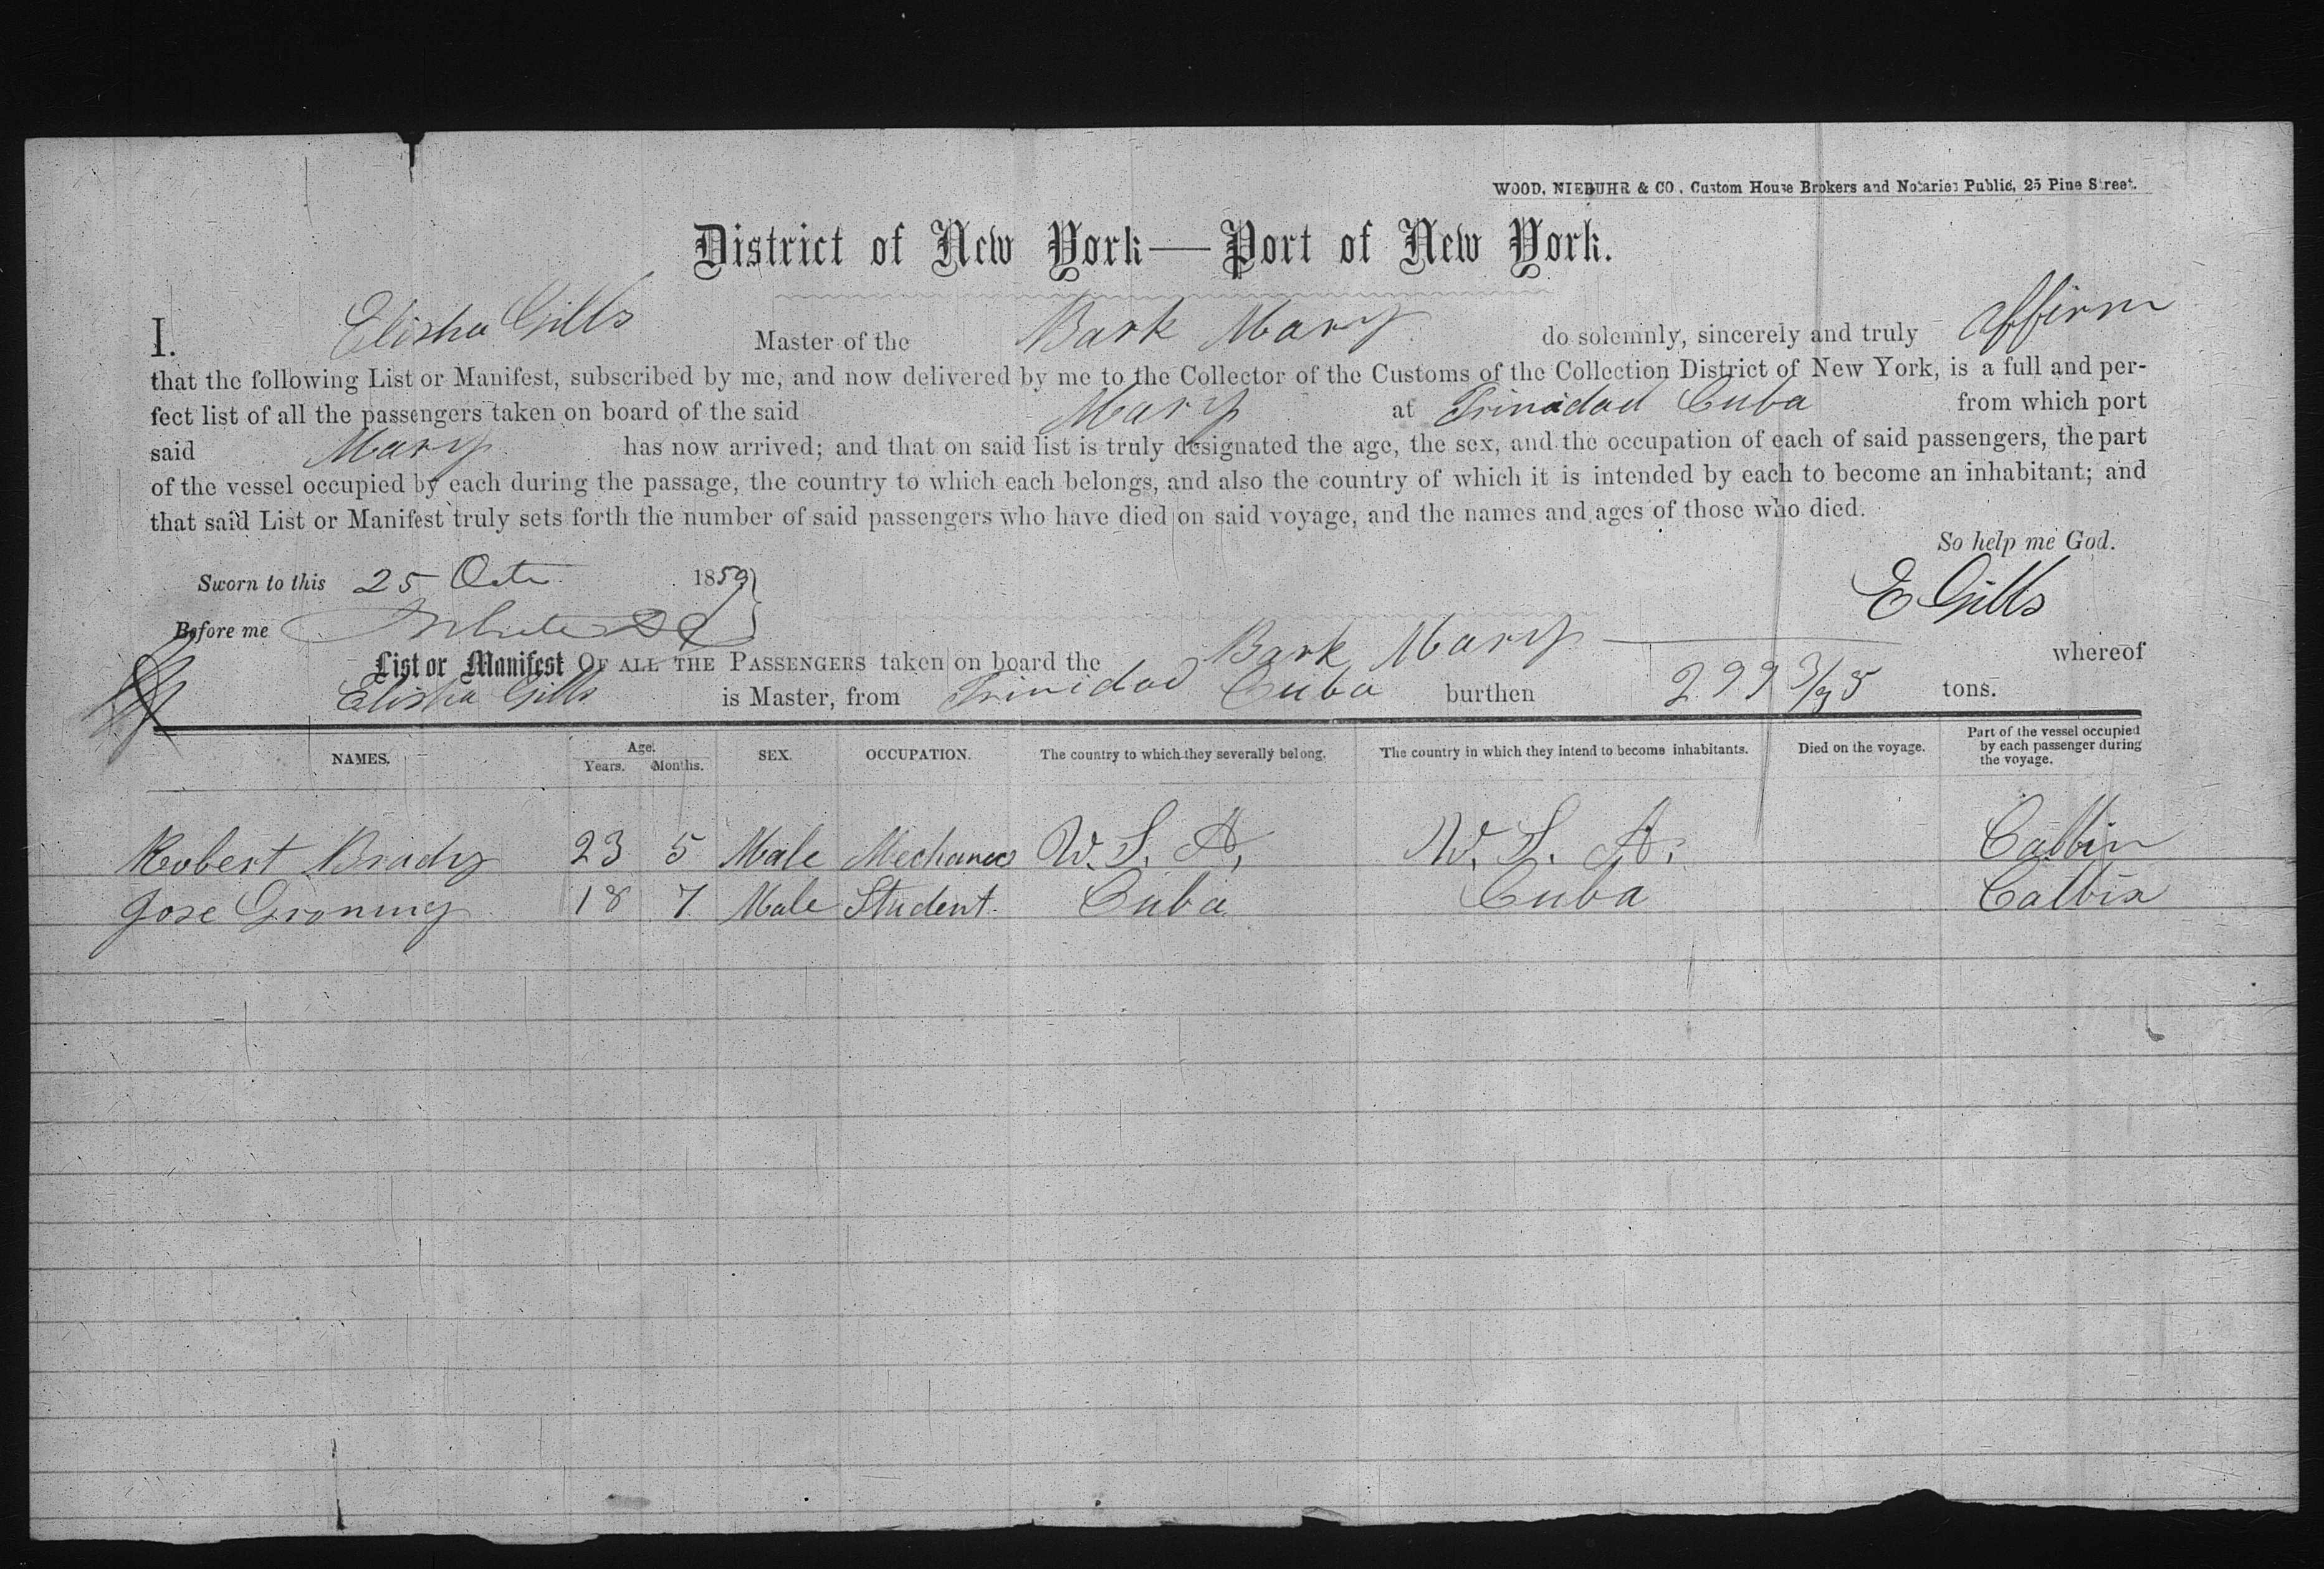 WOOD, NIEBUHR & CO, Custom House Brokers and Notaries Public, 25 Pine Street.
District of New York—Port of New York.
I. Elisha Gills Master of the Bark Mary do solemnly, sincerely and truly affirm
that the following List or Manifest, subscribed by me, and now delivered by me to the Collector of the Customs of the Collection District of New York, is a full and per-
fect list of all the passengers taken on board of the said Mary at Trinidad Cuba from which port
said Mary has now arrived; and that on said list is truly designated the age, the sex, and the occupation of each of said passengers, the part
of the vessel occupied by each during the passage, the country to which each belongs, and also the country of which it is intended by each to become an inhabitant; and
that said List or Manifest truly sets forth the number of said passengers who have died on said voyage, and the names and ages of those who died.
So help me God.
Sworn to this 25 Octr 1859
E Gills
Before me
List or Manifest OF ALL THE PASSENGERS taken on board the Bark Mary whereof
Elisha Gills is Master, from Trinidad Cuba burthen 299 3/95 tons.
NAMES. Age. Years. Months. SEX. OCCUPATION. The country to which they severally belong. The country in which they intend to become inhabitants. Died on the voyage. Part of the vessel occupied by each passenger during the voyage.
Robert Brady 23 5 Male Mechanic U. S. A. U. S. A. Cabbin
Jose Groning 18 7 Male Student Cuba Cuba Cabbin